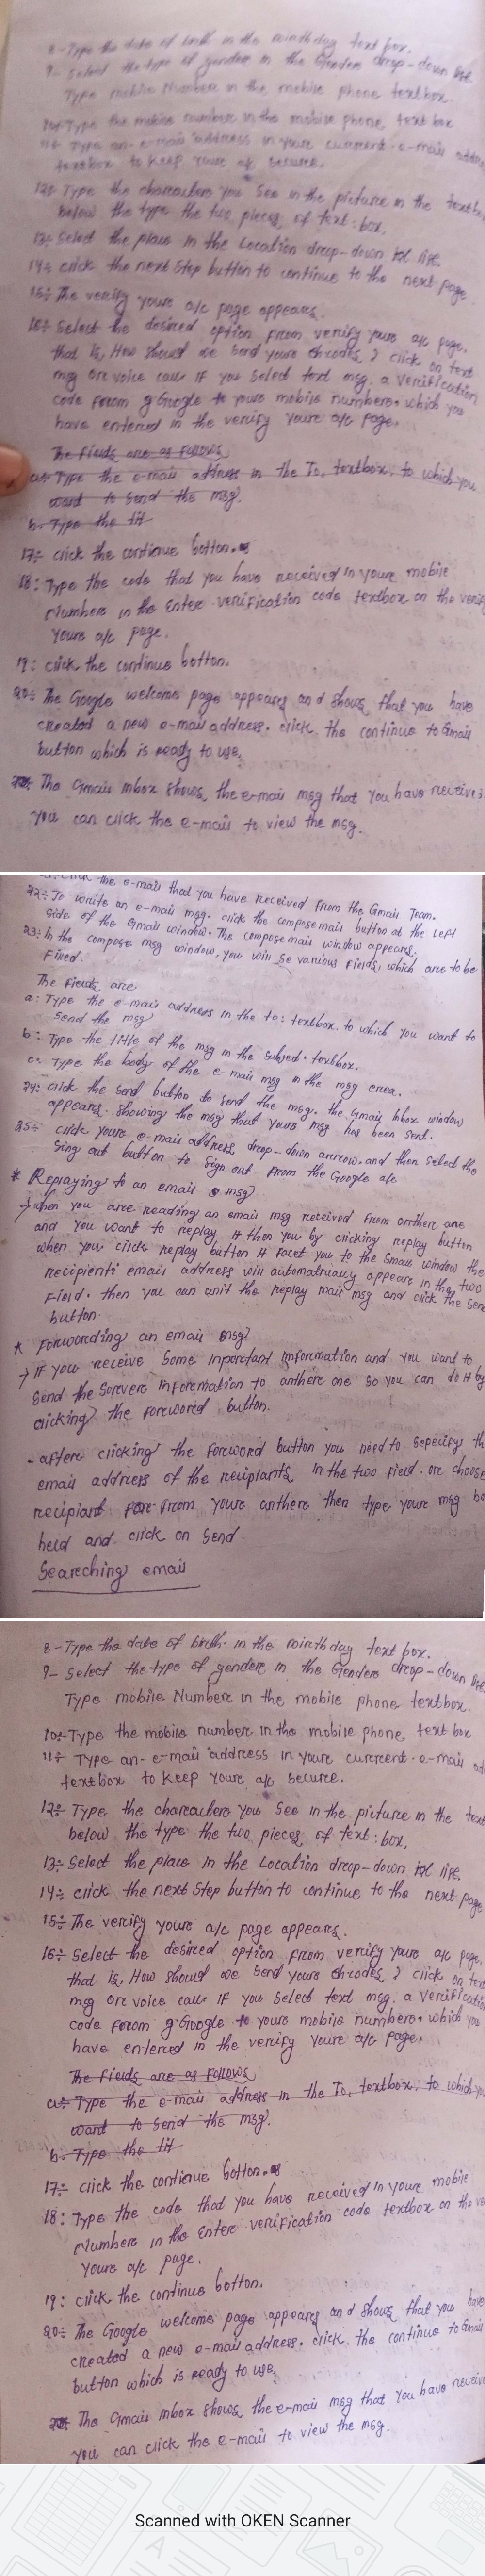 8-Type the date of birth in the mirthday text box.
9- Select the type of gender in the Genders drop-down list
Type mobile Number in the mobile phone textbox.
10÷ Type the mobile number in the mobile phone text box
11÷ Type an-e-mail address in youre current-e-mail
textbox to keep youre a/c secure.
12÷ Type the characters you See in the picture in the
below the type the two pieces of text:box,
13÷ Select the place in the Location drop-down list.
14÷ click the next Step button to continue to the next page
15÷ The verify youre a/c page appears.
16÷ Select the desired option From verify youre a/c page.
that is, How should we send youre chcodes? click on text
msg or voice call. IF you select text msg. a verification
code from g Google to youre mobile numbers. which you
have entered in the verify youre a/c page.
The fields are as Follows
a÷ Type the e-mail address in the To, textbox, to which you
want to send the msg.
b. Type the tit
17÷ click the continue botton.
18: Type the code that you have received in youre mobile
Number in the Enter verification code textbox on the verify
youre a/c page.
19: click the continue botton.
20÷ The Google welcome page appears and shows that you have
created a new e-mail address. click the continue to Gmail
button which is ready to use,
The Gmail inbox shows the e-mail msg that you have receive
you can click the e-mail to view the msg.
the e-mail that you have received From the Gmail Team.
22÷ To write an e-mail msg. click the compose mail button at the Left
side of the Gmail window. The compose mail window appears.
23: In the compose msg window, you win se various Fields, which are to be
Fixed.
The Fields are
a: Type the e-mail address in the to: textbox. to which you want to
send the msg
b: Type the title of the msg in the subject textbox.
c: Type the body of the e-mail msg in the msg erea.
24: click the send button to send the msg. the Gmail Inbox window
appears showing the msg that youre msg has been sent.
25÷ click youre e-mail address, drop-down arrow. and then select the
Sing out button to sign out From the Google a/c
* Replaying to an email msg?
→ when you are reading an email msg received From onthere one
and you want to replay it then you by clicking replay button
when you click replay button it facet you to the small window the
recipient's email address will automatrically appears in the two
Field. then you can unit the replay mail msg and click the sen
button.
* Forwording an email msg?
→ IF you receive some inportant information and you want to
send the Sorevere information to anthere one so you can do it by
clicking the foreword button.
-aftere clicking the foreword button you need to seperify th
email address of the recipiants. In the two field. ore choose
recipiant from youre anthere then type youre msg bo
held and click on send.
Seareching email
8-Type the date of birth in the mirthday text box.
9- Select the type of gender in the Genders drop-down list
Type mobile Number in the mobile phone textbox.
10÷ Type the mobile number in the mobile phone, text box
11÷ Type an-e-mail address in youre current-e-mail
textbox to keep youre a/c secure.
12÷ Type the characters you See in the picture in the text
below the type the two pieces of text:box,
13÷ Select the place in the Location drop-down list.
14÷ click the next Step button to continue to the next page
15÷ The verify youre a/c page appears.
16÷ Select the desired option From verify youre a/c page.
that is, How should we send youre chcodes? click on text
msg or voice call. IF you select text msg. a verification
code from g Google to youre mobile numbers. which you
have entered in the verify youre a/c page.
The fields are as Follows
a÷ Type the e-mail address in the To, textbox, to which you
want to send the msg.
b. Type the tit
17÷ click the continue botton.
18: Type the code that you have received in youre mobile
Number in the Enter verification code textbox on the
youre a/c page.
19: click the continue botton.
20÷ The Google welcome page appears and shows that you have
created a new e-mail address. click the continue to Gmail
button which is ready to use,
The Gmail inbox shows the e-mail msg that you have receive
you can click the e-mail to view the msg.
Scanned with OKEN Scanner